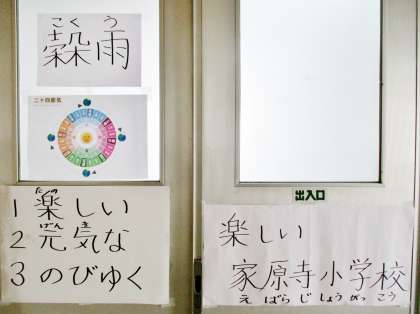 こく う
穀雨
二十四節気
たの
1 楽しい
げん き
2 元気な
3 のびゆく
出入口
楽しい
家原寺小学校
え ばら じ しょう がっ こう